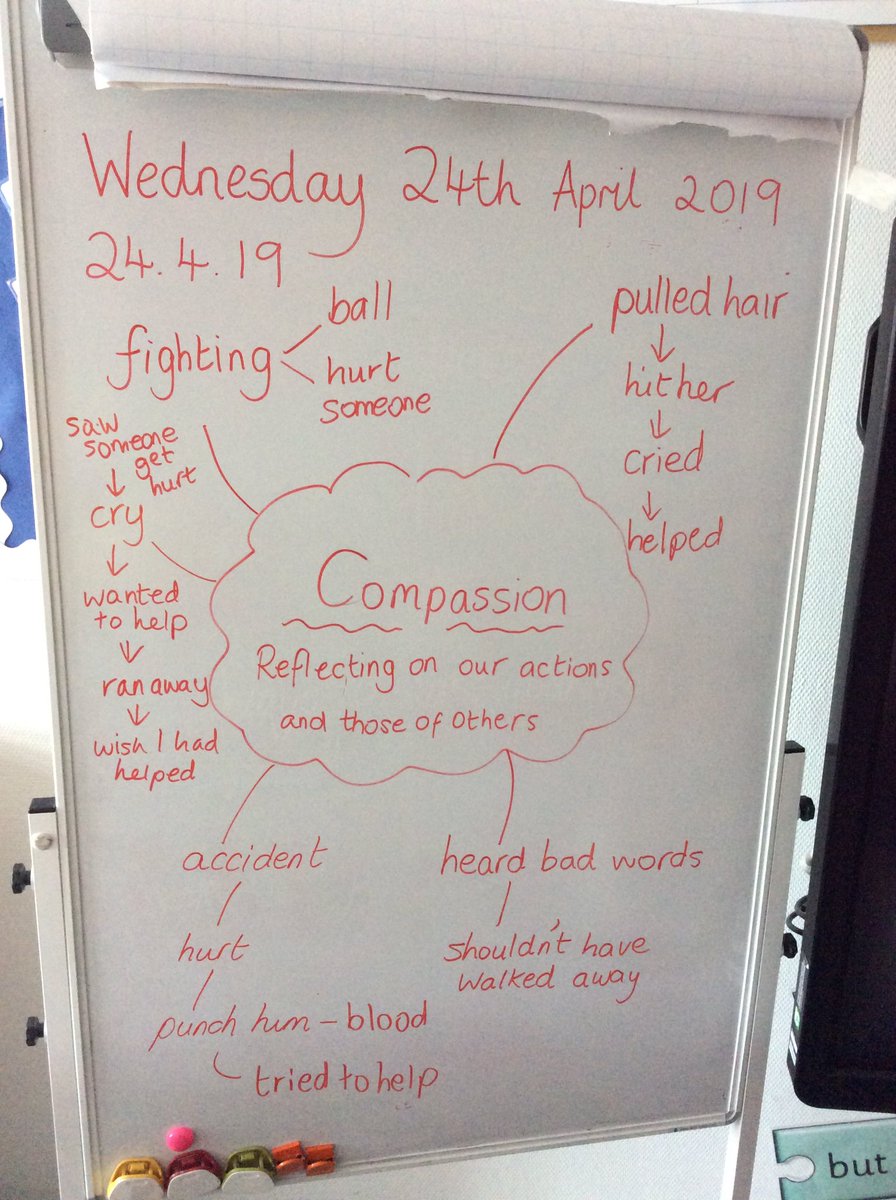 Wednesday 24th April 2019
24.4.19
fighting
ball
hurt
someone
pulled hair
hit her
cried
helped
saw
someone
get
hurt
cry
wanted
to help
ran away
wish I had
helped
Compassion
Reflecting on our actions
and those of others
accident
hurt
punch him – blood
tried to help
heard bad words
shouldn't have
walked away
but